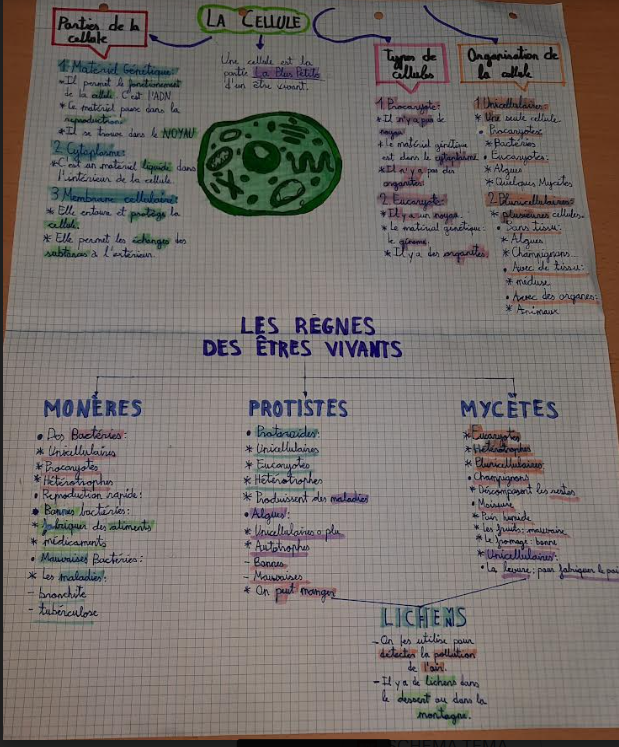 LA CELLULE
Une cellule est la
partie La Plus Petite
d'un être vivant.
Parties de la
cellule
1. Matériel Génétique
* Il permet le fonctionnement
de la cellule. C'est l'ADN
* Le matériel passe dans la
reproduction
* Il se trouve dans le NOYAU
2. Cytoplasme:
* C'est un matériel liquide dans
l'intérieur de la cellule
3. Membrane cellulaire
* Elle entoure et protège la
cellule.
* Elle permet les échanges des
substances à l'extérieur
Types de
cellules
1. Procaryote:
* Il n'y a pas de
noyau
* Le matériel génétique
est dans le cytoplasme
* Il n'y a pas des
organites
2. Eucaryote:
* Il y a un noyau
* Le matériel génétique:
le génome
* Il y a des organites.
Organisation de
la cellule
1. Unicellulaires:
* Une seule cellule
• Procaryotes:
* Bactéries
• Eucaryotes:
* Algues
* Quelques Mycètes
2. Pluricellulaires:
* plusieures cellules.
• Sans tissu:
* Algues
* Champignons
• Avec de tissu:
* méduse
• Avec des organes:
* Animaux
LES RÈGNES
DES ÊTRES VIVANTS
MONÈRES
• Des Bactéries:
* Unicellulaires
* Procaryotes
* Hétérotrophes
• Reproduction rapide:
• Bonnes bactéries:
* fabriquer des aliments
* médicaments
• Mauvaises Bactéries:
* Les maladies:
- bronchite
- tubérculose
PROTISTES
• Protozoides:
* Unicellulaires
* Eucaryotes
* Hétérotrophes
* Produissent des maladies
• Algues:
* Unicellulaires o plu.
* Autotrophes
- Bonnes
- Mauvaises
* On peut manger
MYCÈTES
* Eucaryotes
* Hétérotrophes
* Pluricellulaires
• Champignons
* Décomposent les restes
• Moisure
* Pain humide
* Les fruits: mauvaise
* Le fromage: bonne
* Unicellulaires:
• La levure: pour fabriquer le pai
LICHENS
- On les utilise pour
détecter la pollution
de l'air.
- Il y a de lichens dans
le dessert ou dans la
montagne.